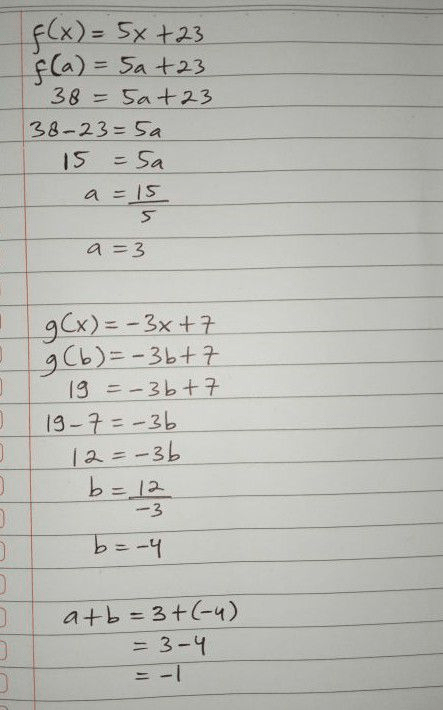 f(x) = 5x + 23
f(a) = 5a + 23
38 = 5a + 23
38 - 23 = 5a
15 = 5a
a = 15/5
a = 3
g(x) = -3x + 7
g(b) = -3b + 7
19 = -3b + 7
19 - 7 = -3b
12 = -3b
b = 12/-3
b = -4
a + b = 3 + (-4)
= 3 - 4
= -1